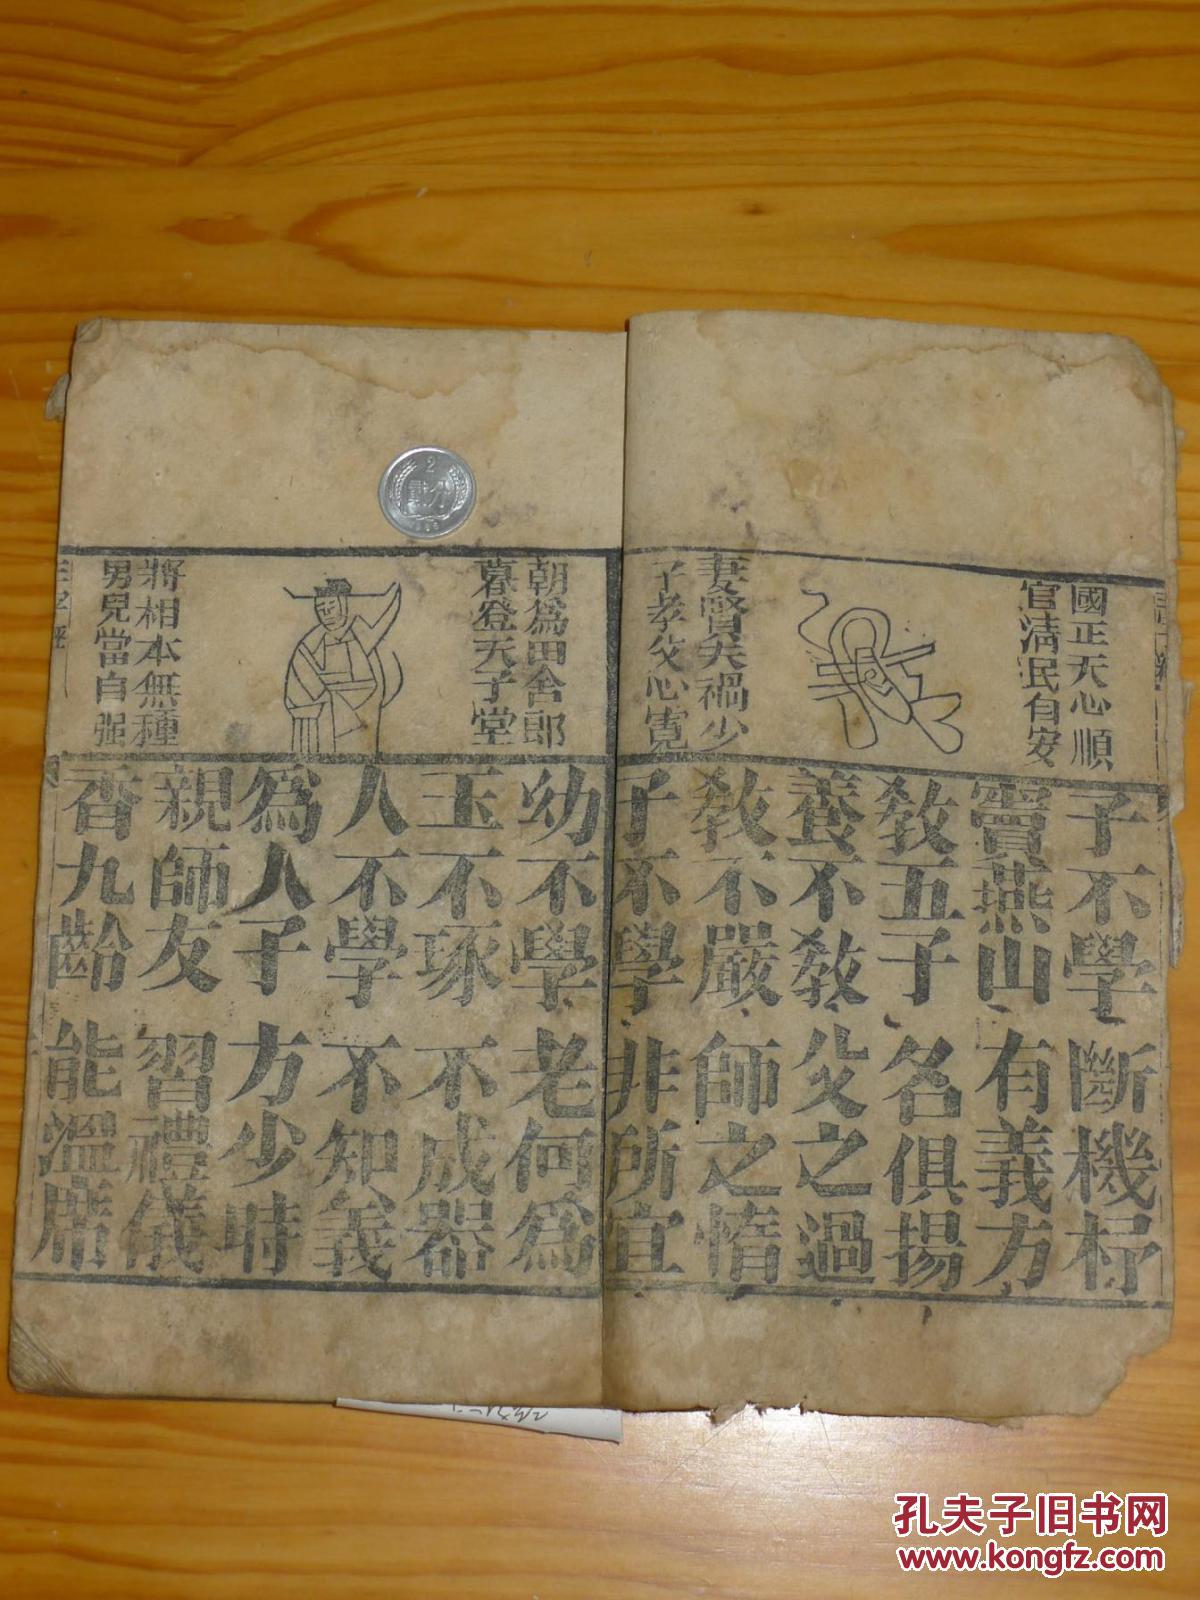 國正天心順
官清民自安
妻賢夫禍少
子孝父心寬
子不學 斷機杼
竇燕山 有義方
教五子 名俱揚
養不教 父之過
教不嚴 師之惰
子不學 非所宜
朝爲田舍郎
暮登天子堂
將相本無種
男兒當自强
幼不學 老何爲
玉不琢 不成器
人不學 不知義
爲人子 方少時
親師友 習禮儀
香九齡 能溫席
三字經
2
貳分
孔夫子旧书网
www.kongfz.com